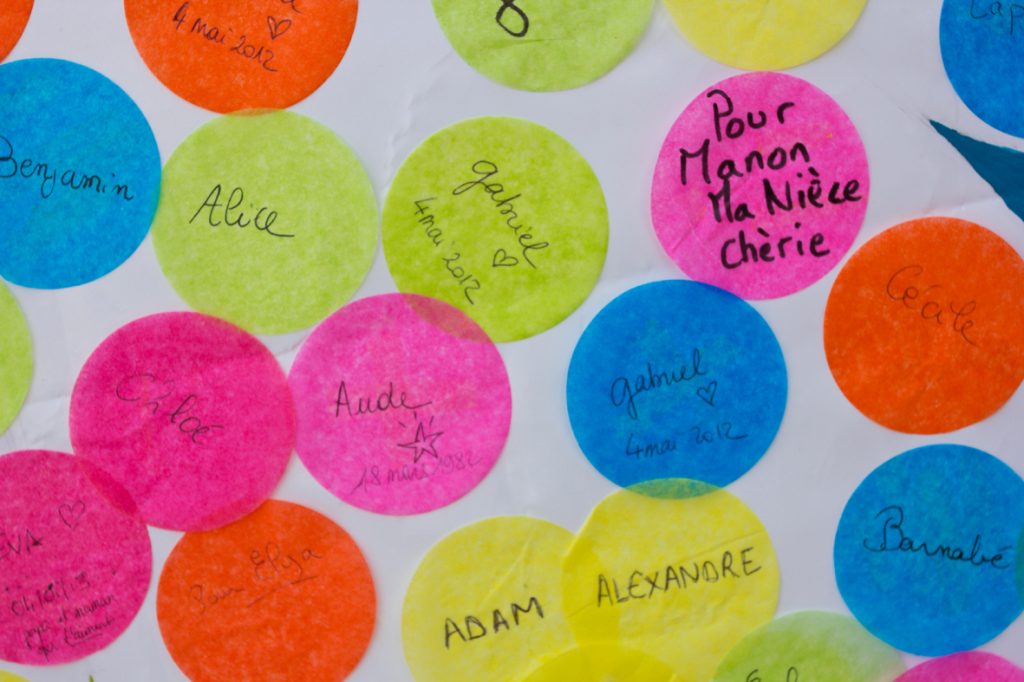 4 mai 2012
8
Benjamin
Alice
gabriel
4 mai 2012
Pour
Manon
Ma Nièce
Chèrie
Cécile
Chloé
Aude
18 mars 1982
gabriel
4 mai 2012
EVA
papa et maman
Pour Elya
ADAM
ALEXANDRE
Barnabé